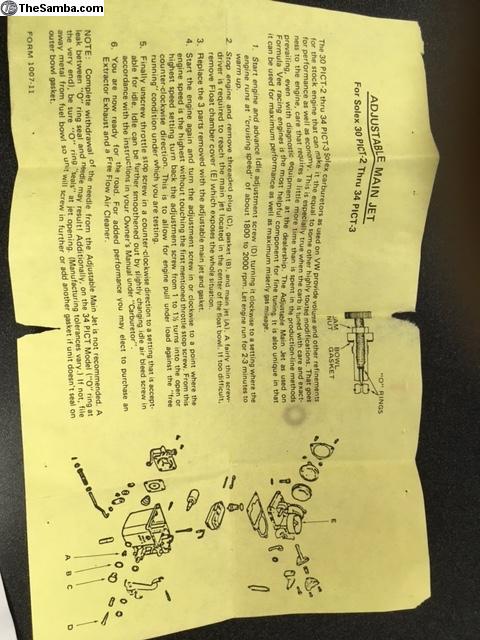 TheSamba.com
ADJUSTABLE MAIN JET
For Solex 30 PICT-2 Thru 34 PICT-3
"O" RINGS
JAM NUT
BOWL GASKET
The 30 PICT-2 thru 34 PICT-3 Solex carburetors as used on VW provide values and other refinements
for the stock engine that can make it the equal to some other highly touted modifications. That goes
for performance as well as economy. This is especially true when the car is tuned with care and exact-
ness to the engine, care that requires a little more time than is spent in the production-line methods
prevailing, even with diagnostic equipment at the dealership. The Adjustable Main Jet as used on
Formula Vee racing engines is the most helpful component for fine tuning. It is also unique in that
it can be used for maximum performance as well as maximum miserly gas mileage.
1. Start engine and advance Idle adjustment screw (D) turning it clockwise to a setting where the
engine runs at "cruising speed" of about 1800 to 2000 rpm. Let engine run for 2-3 minutes to
warm up.
2. Stop engine and remove threaded plug (C), gasket (B), and main jet (A). A fairly thin screw-
driver is required to reach the main jet located in the center of the float bowl. If too difficult,
remove Float chamber cover (E) which exposes the whole situation.
3. Replace the 3 parts removed with the adjustable main jet and gasket.
4. Start the engine again and turn the adjustment screw in or clockwise to a point where the
engine speed is the highest without touching the first mentioned throttle stop screw. From this
highest speed setting to back the adjustment screw from 1 to 1½ turns into the open or
counter-clockwise direction. This is to allow for engine pull under load against the "free
running" condition under which you are testing.
5. Finally unscrew throttle stop screw in a counter-clockwise direction to a setting that is accept-
able for idle. Idle can be further smoothened out by slightly changing idle air bleed screw in
accordance with the instructions in your Owner's Manual under "Carburetor".
6. You are now ready for the road. For added performance you may elect to purchase an
Extractor Exhaust and a Free Flow Air Cleaner.
NOTE: Complete withdrawal of the needle from the Adjustable Main Jet is not recommended. A
leak between "O" ring seal and needle may result! Additionally, on the 34 PICT Model ("O" ring at
the very end), be sure "O" ring "seals" in jet opening. (Manufacturing tolerances vary.) If not, file
away metal from fuel bowl so unit will screw in further or add another gasket if unit doesn't seal on
outer bowl gasket.
FORM 1007-11
E
A
B
C
D